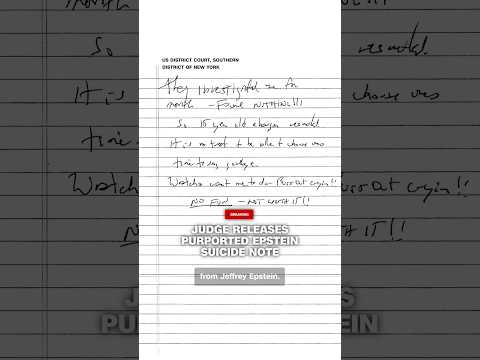 US DISTRICT COURT, SOUTHERN
DISTRICT OF NEW YORK
they investigated me for
month – Found NOTHING!!!
So 15 year old charges resulted
It is to be able to choose ones
time to say
want me to do – Burst out cryin!!
NO FUN – NOT WORTH IT!!
BREAKING
JUDGE RELEASES
PURPORTED EPSTEIN
SUICIDE NOTE
from Jeffrey Epstein.